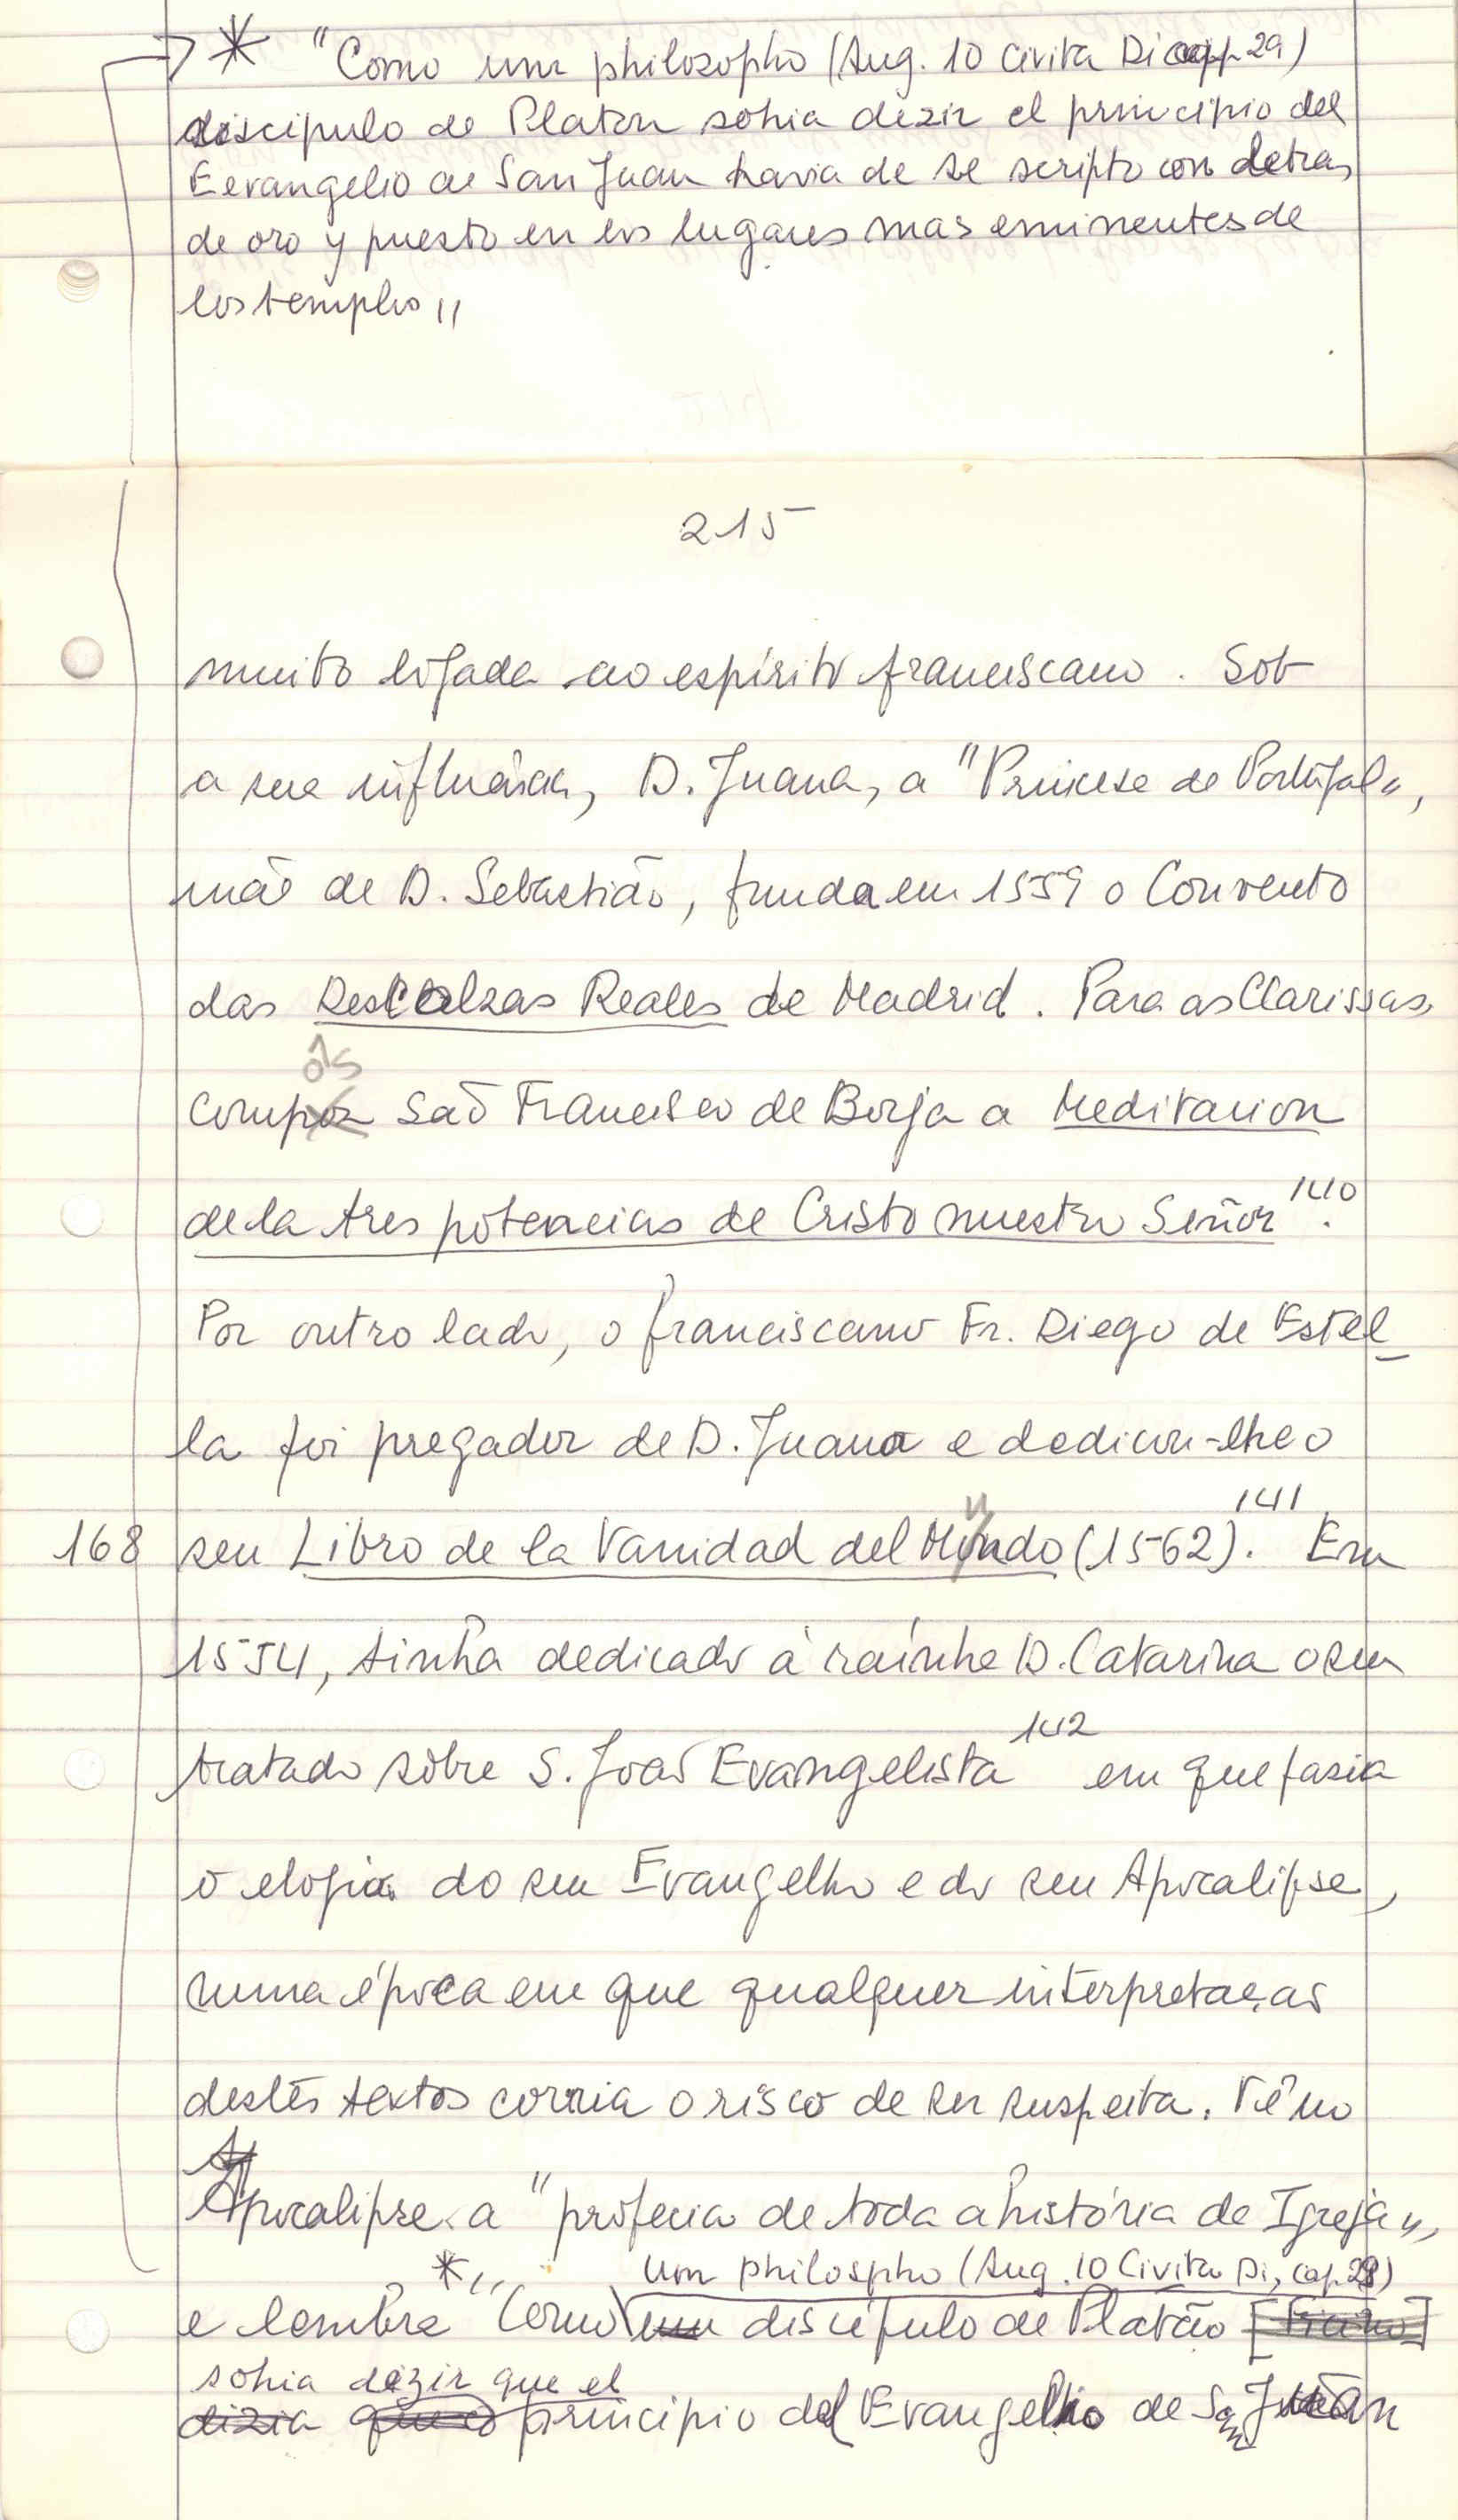 * "Como um philosopho (Aug. 10 Civita Di cap. 29)
discipulo de Platon sohia dezir el principio del
Eevangelio de San Juan havia de se scripto con letras
de oro y puesto en los lugares mas eminentes de
los templos"
215
muito ligada ao espírito franciscano. Sob
a sua influência, D. Juana, a "Princesa de Portugal",
mãe de D. Sebastião, funda em 1559 o Convento
das Descalzas Reales de Madrid. Para as Clarissas,
ôs
compoz São Francisco de Borja a Meditacion
de la tres potencias de Cristo nuestro Señor 140.
Por outro lado, o franciscano Fr. Diego de Estel_
la foi pregador de D. Juana e dedicou-lhe o
168 seu Libro de la Vanidad del Mundo (1562). 141 Em
1554, tinha dedicado à raínha D. Catarina o seu
tratado sôbre S. João Evangelista 142 em que fazia
o elogio do seu Evangelho e do seu Apocalipse,
numa época em que qualquer interpretação
destes textos corria o risco de ser suspeita. Vê no
Ap
Apocalipse a "profecia de toda a história da Igreja",
um philospho (Aug. 10 Civita Di, cap. 29)
e lembra *" Como um discípulo de Platão
sohia dezir que el
dizia que o principio del Evangelio de San Juan